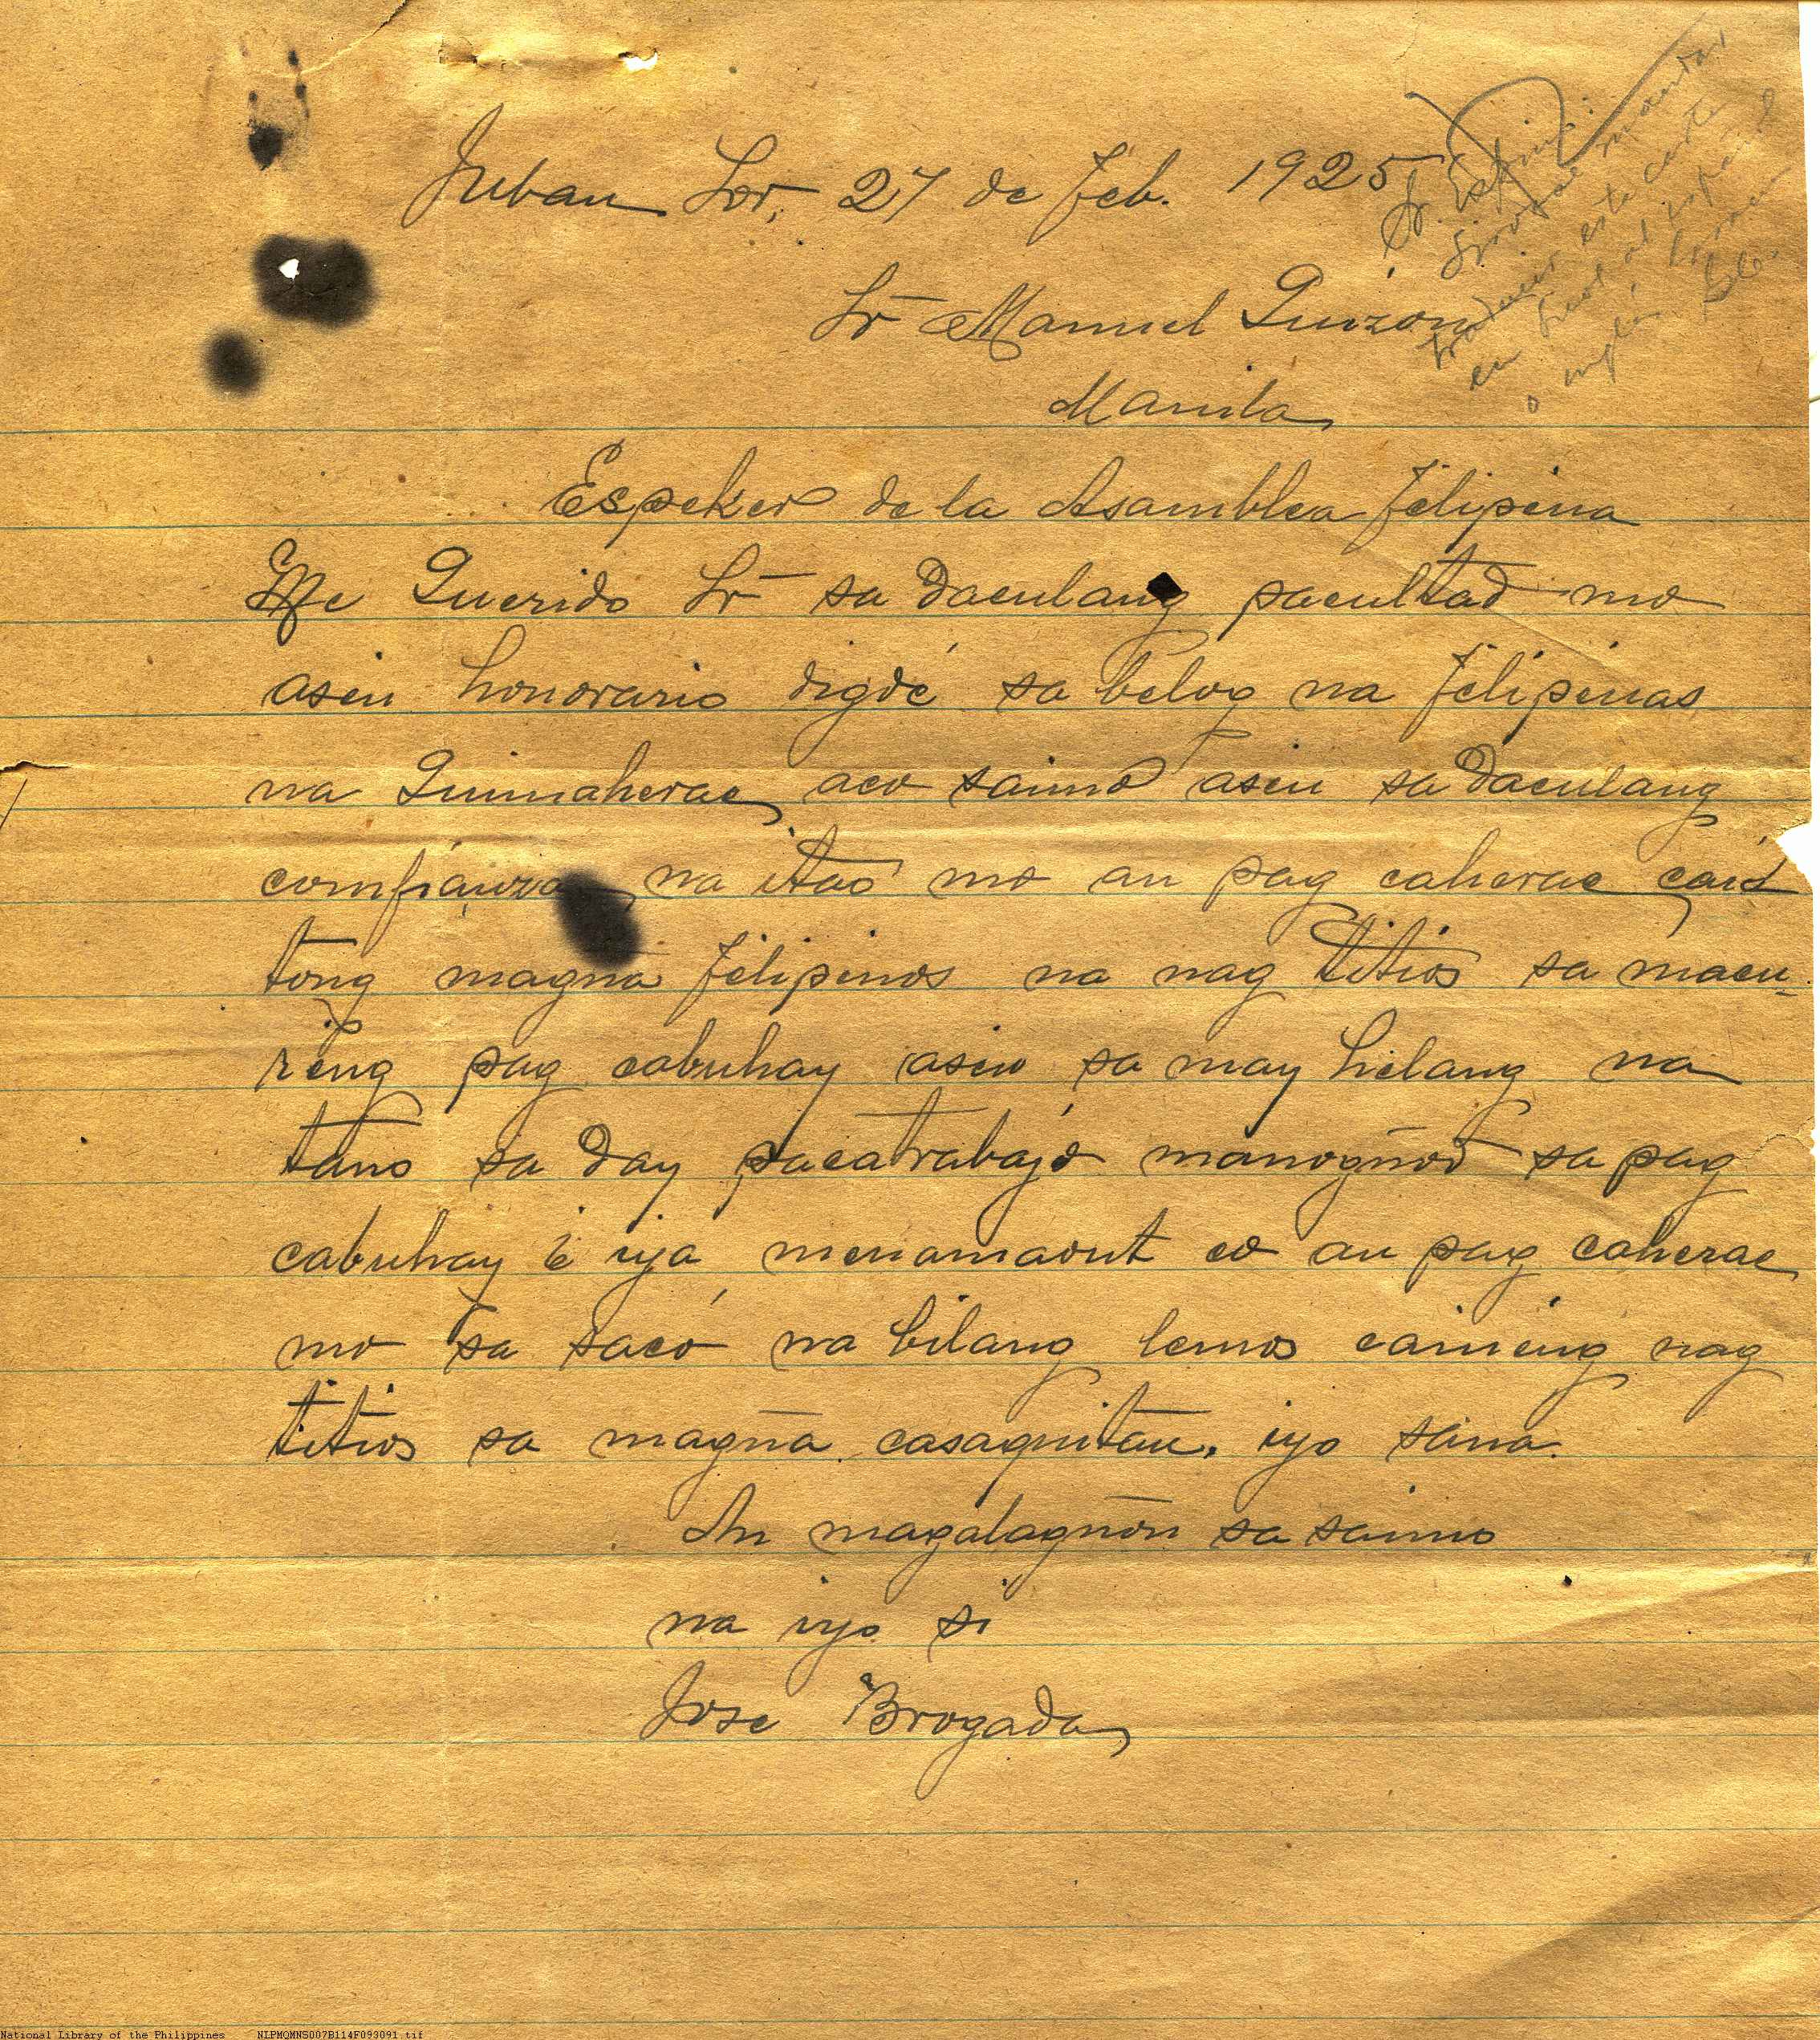 Juban Sor, 27 de Feb. 1925
Sr. Espino:
Sirvase mandar
traducir esta carta
en bicol al español
o inglés.
Sr Manuel Quizon
Manila
Espeker de la Asamblea Felipina
Me Querido Sr sa Daculang pacultad mo
asen honorario digde sa belog na Felipenas
na Quinaherac aco saimo asen sa Daculang
comfianza na itao mo an pag caherac caid
tong magna Felipenos na nag titios sa macu-
reng pag cabuhay asen sa may helang na
tano sa day pacatrabajo manogñod sa pag
cabuhay e iya menamaout co an pag caherac
mo sa saco na bilang lemos cameng nag
titios sa magña casaquitan. iyo sana.
An magalagñon sa saimo
na iyo si
Jose Brogada
National Library of the Philippines NLPMQMNS007B114F093091.tif